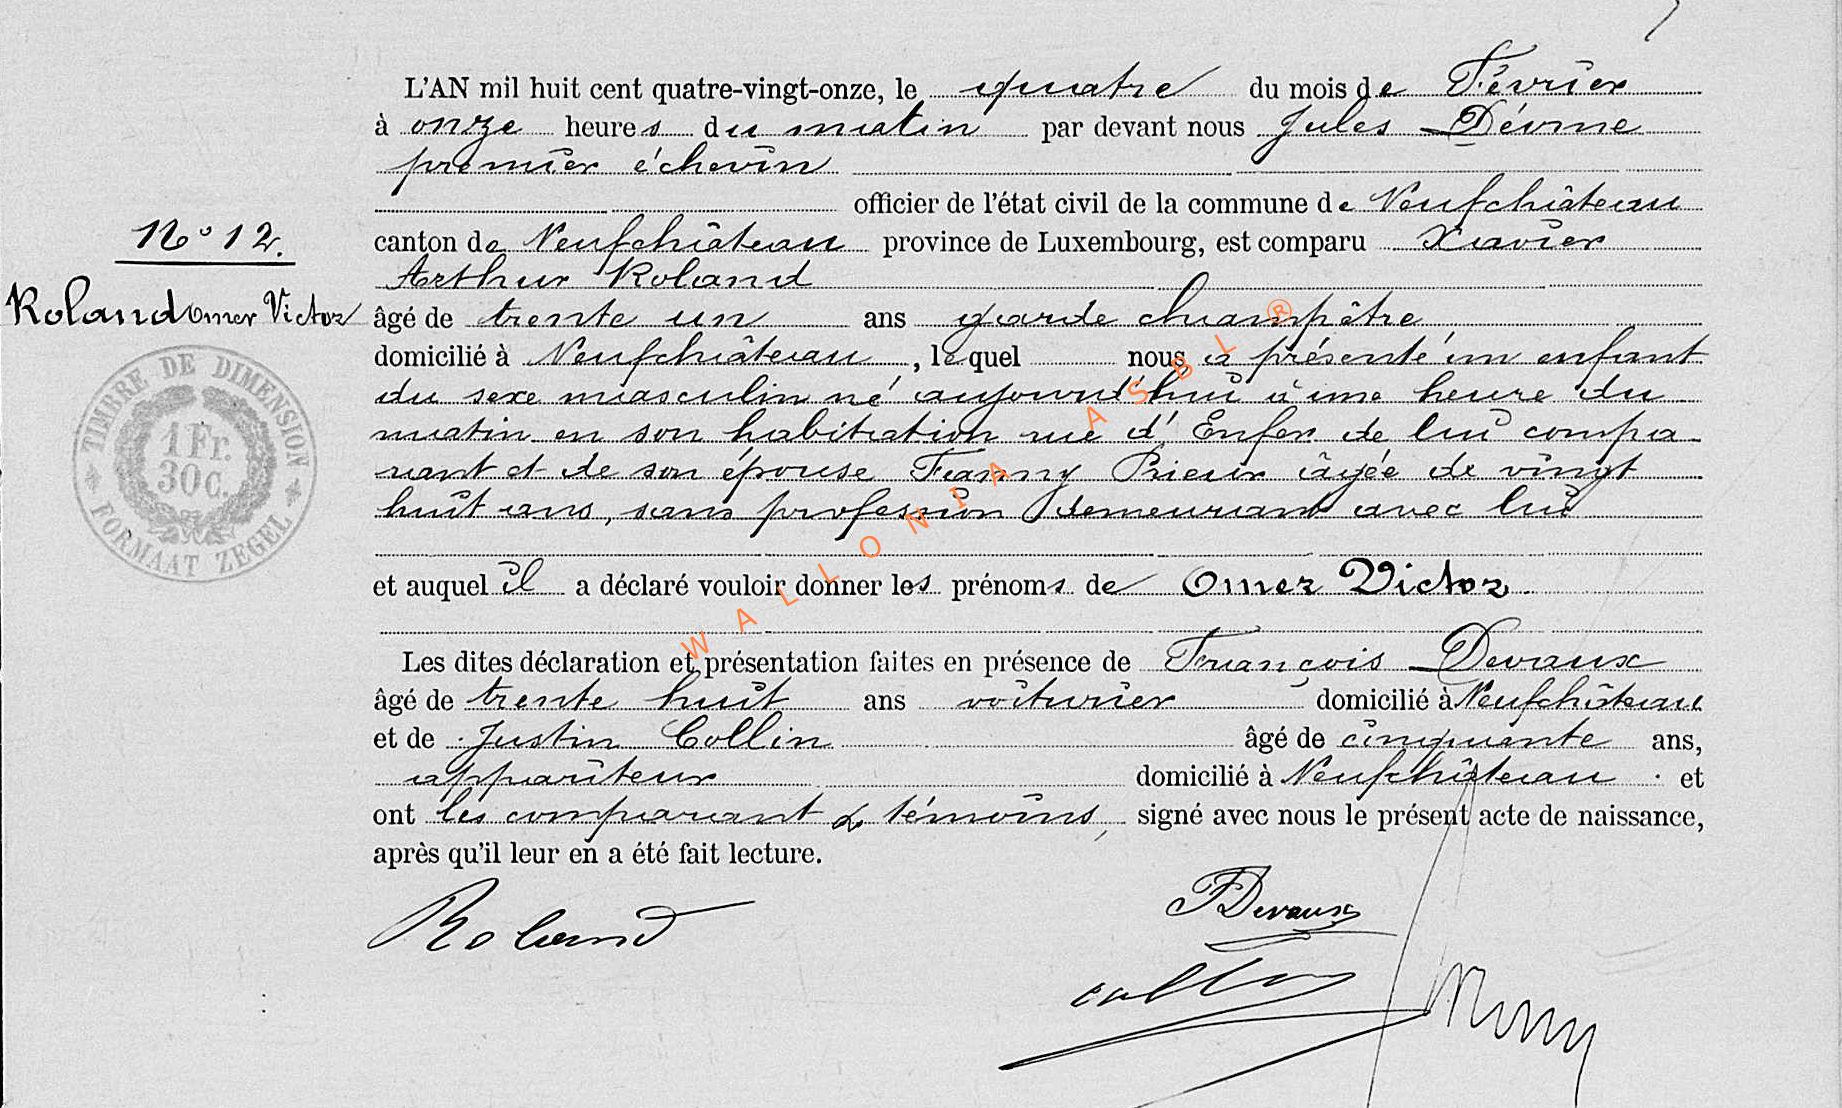 L'AN mil huit cent quatre-vingt-onze, le quatre du mois de Février
à onze heures du matin par devant nous Jules
premier échevin
officier de l'état civil de la commune de Neufchâteau
N° 12.
canton de Neufchâteau province de Luxembourg, est comparu Xavier
Arthur Roland
Roland Omer Victor
âgé de trente un ans garde champêtre
domicilié à Neufchâteau, lequel nous a présenté un enfant
du sexe masculin né aujourd'hui à une heure du
matin en son habitation rue d'Enfer de lui compa-
rant et de son épouse Fanny Prieur âgée de vingt
huit ans, sans profession demeurant avec lui
TIMBRE DE DIMENSION
1 Fr.
30 C.
FORMAAT ZEGEL
et auquel il a déclaré vouloir donner les prénoms de Omer Victor.
Les dites déclaration et présentation faites en présence de François Devaux
âgé de trente huit ans voiturier domicilié à Neufchâteau
et de Justin Collin âgé de cinquante ans,
appariteur domicilié à Neufchâteau et
ont les comparant & témoins, signé avec nous le présent acte de naissance,
après qu'il leur en a été fait lecture.
WALLONIA ASBL ®
Roland
FDevaux
Collin